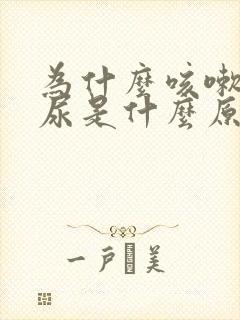 為什麼咳嗽
尿是什麼原
一戶 美